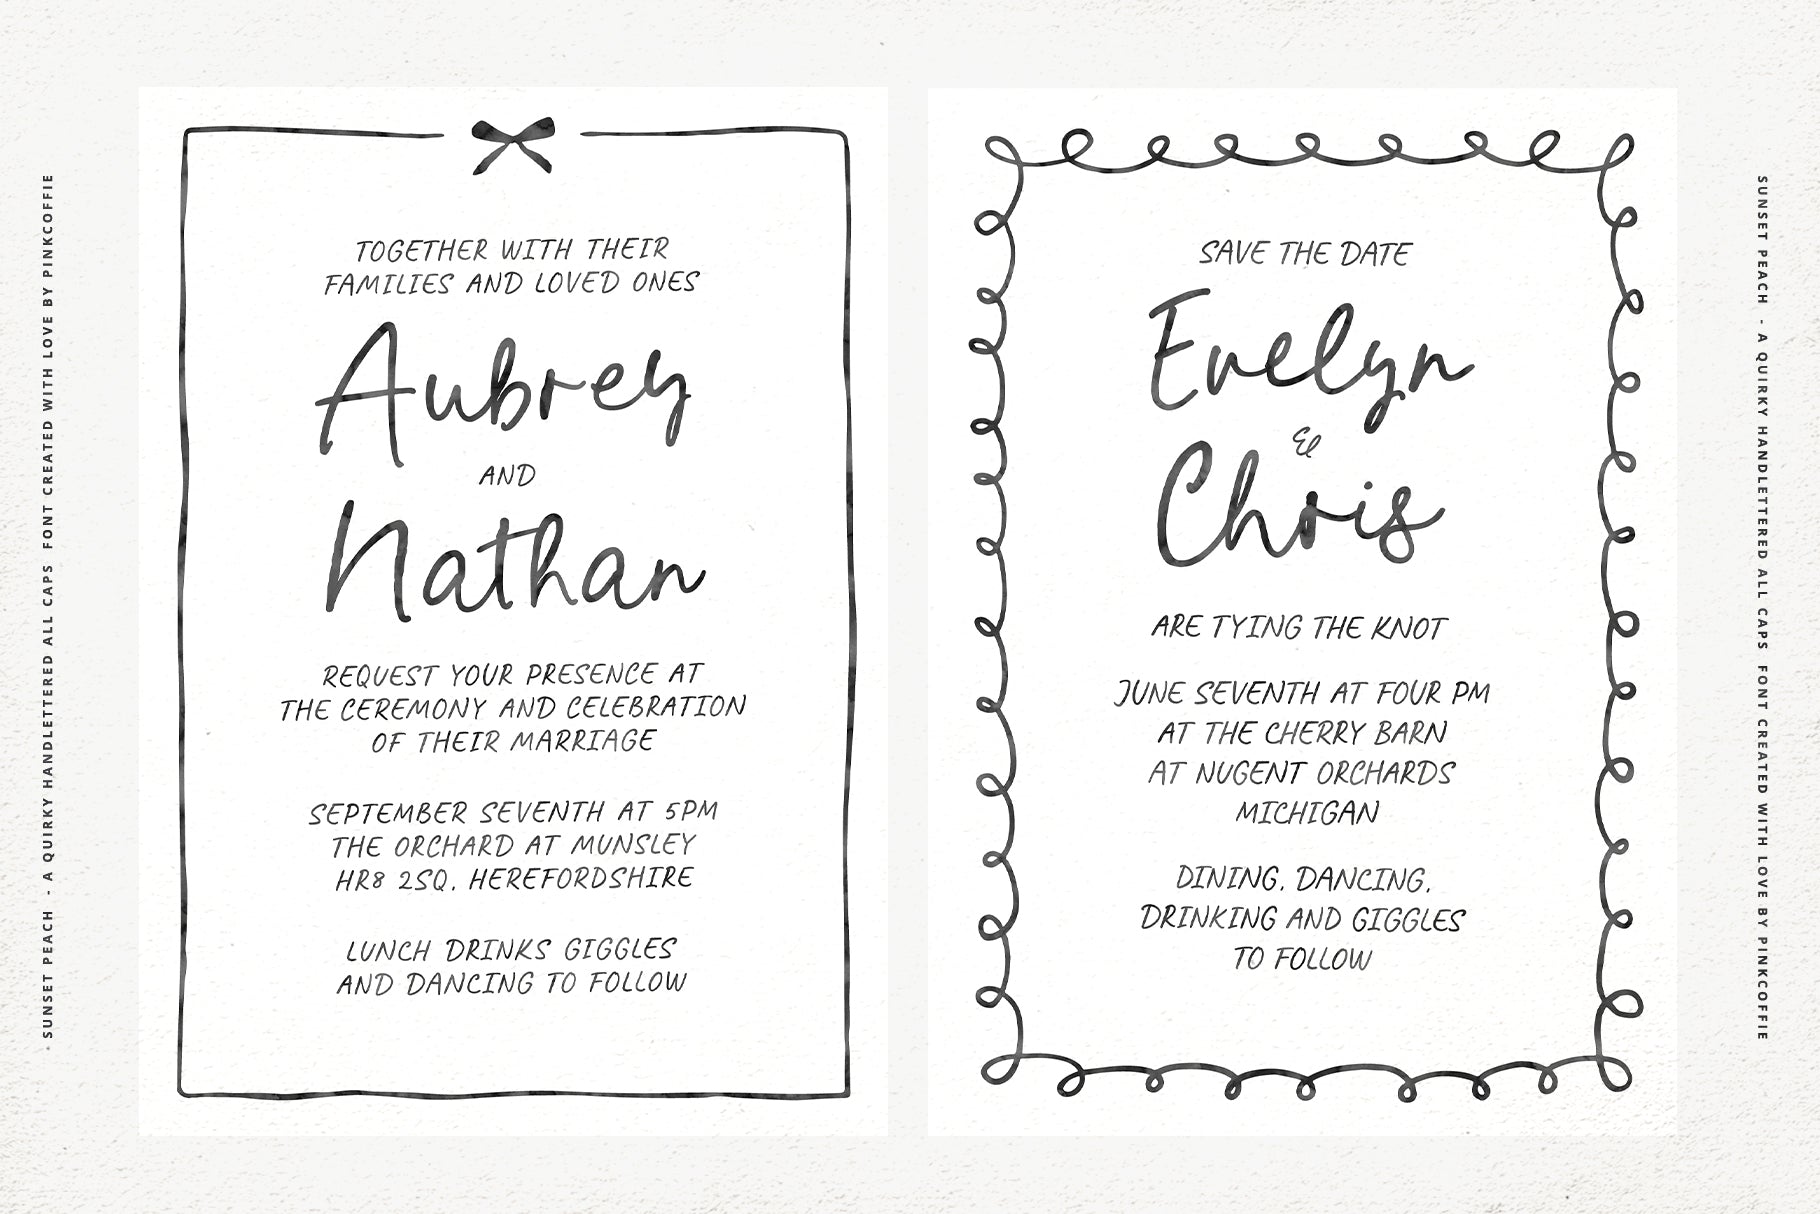 SUNSET PEACH - A QUIRKY HANDLETTERED ALL CAPS FONT CREATED WITH LOVE BY PINKCOFFIE
TOGETHER WITH THEIR
FAMILIES AND LOVED ONES
Aubrey
AND
Nathan
REQUEST YOUR PRESENCE AT
THE CEREMONY AND CELEBRATION
OF THEIR MARRIAGE
SEPTEMBER SEVENTH AT 5PM
THE ORCHARD AT MUNSLEY
HR8 2SQ, HEREFORDSHIRE
LUNCH DRINKS GIGGLES
AND DANCING TO FOLLOW
SAVE THE DATE
Evelyn
&
Chris
ARE TYING THE KNOT
JUNE SEVENTH AT FOUR PM
AT THE CHERRY BARN
AT NUGENT ORCHARDS
MICHIGAN
DINING, DANCING,
DRINKING AND GIGGLES
TO FOLLOW
SUNSET PEACH - A QUIRKY HANDLETTERED ALL CAPS FONT CREATED WITH LOVE BY PINKCOFFIE